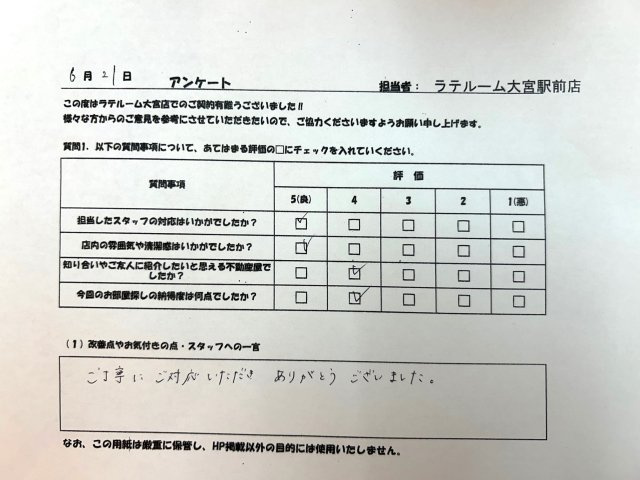 6月21日 アンケート 担当者： ラテルーム大宮駅前店
この度はラテルーム大宮店でのご契約有難うございました!!
様々な方からのご意見を参考にさせていただきたいので、ご協力くださいますようお願い申し上げます。
質問1．以下の質問事項について、あてはまる評価の□にチェックを入れていください。
質問事項 評 価
5(良) 4 3 2 1(悪)
担当したスタッフの対応はいかがでしたか？
店内の雰囲気や清潔感はいかがでしたか？
知り合いやご友人に紹介したいと思える不動産屋で
したか？
今回のお部屋探しの納得度は何点でしたか？
（1）改善点やお気付きの点・スタッフへの一言
ご丁寧に ご対応いただき ありがとう ございました。
なお、この用紙は厳重に保管し、HP掲載以外の目的には使用いたしません。